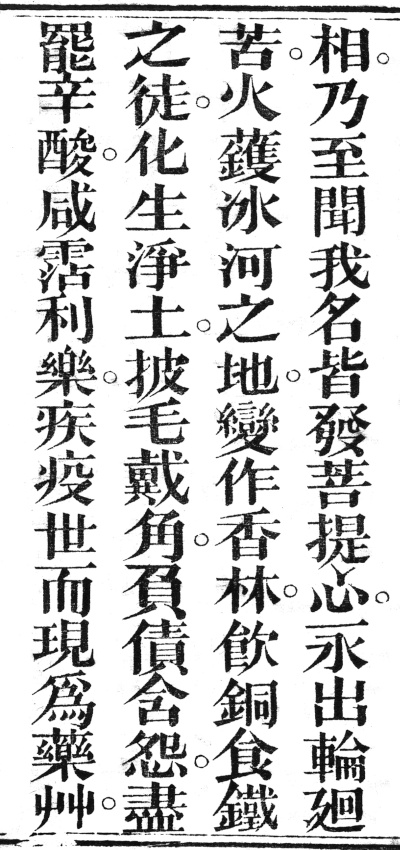 相。乃至聞我名皆發菩提心。永出輪廻
苦。火鑊冰河之地。變作香林。飲銅食鐵
之徒。化生淨土。披毛戴角。負債含怨。盡
罷辛酸。咸霑利樂。疾疫世而現爲藥艸。